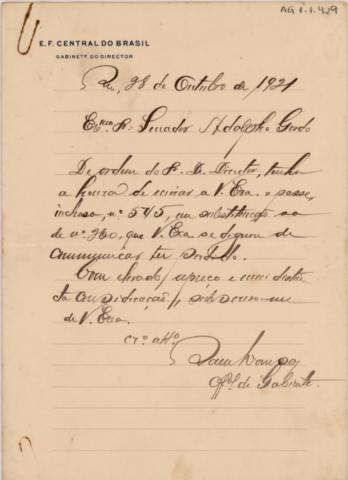 AG 1.1.429
E. F. CENTRAL DO BRASIL
GABINETE DO DIRECTOR
Rio, 28 de Outubro de 1921
Exmo. Sr. Senador Adolpho Gordo
De ordem do S. D. Director, tenho
a honra de enviar a V. Exa. o passe,
incluso, nº 545, em substituição ao
de nº 260, que V. Exa. se dignou de
communicar ter perdido.
Com elevado apreço e mui distin
cta consideração, subscrevo-me
de V. Exa.
Cr.º att.º
Offal. de Gabinete.